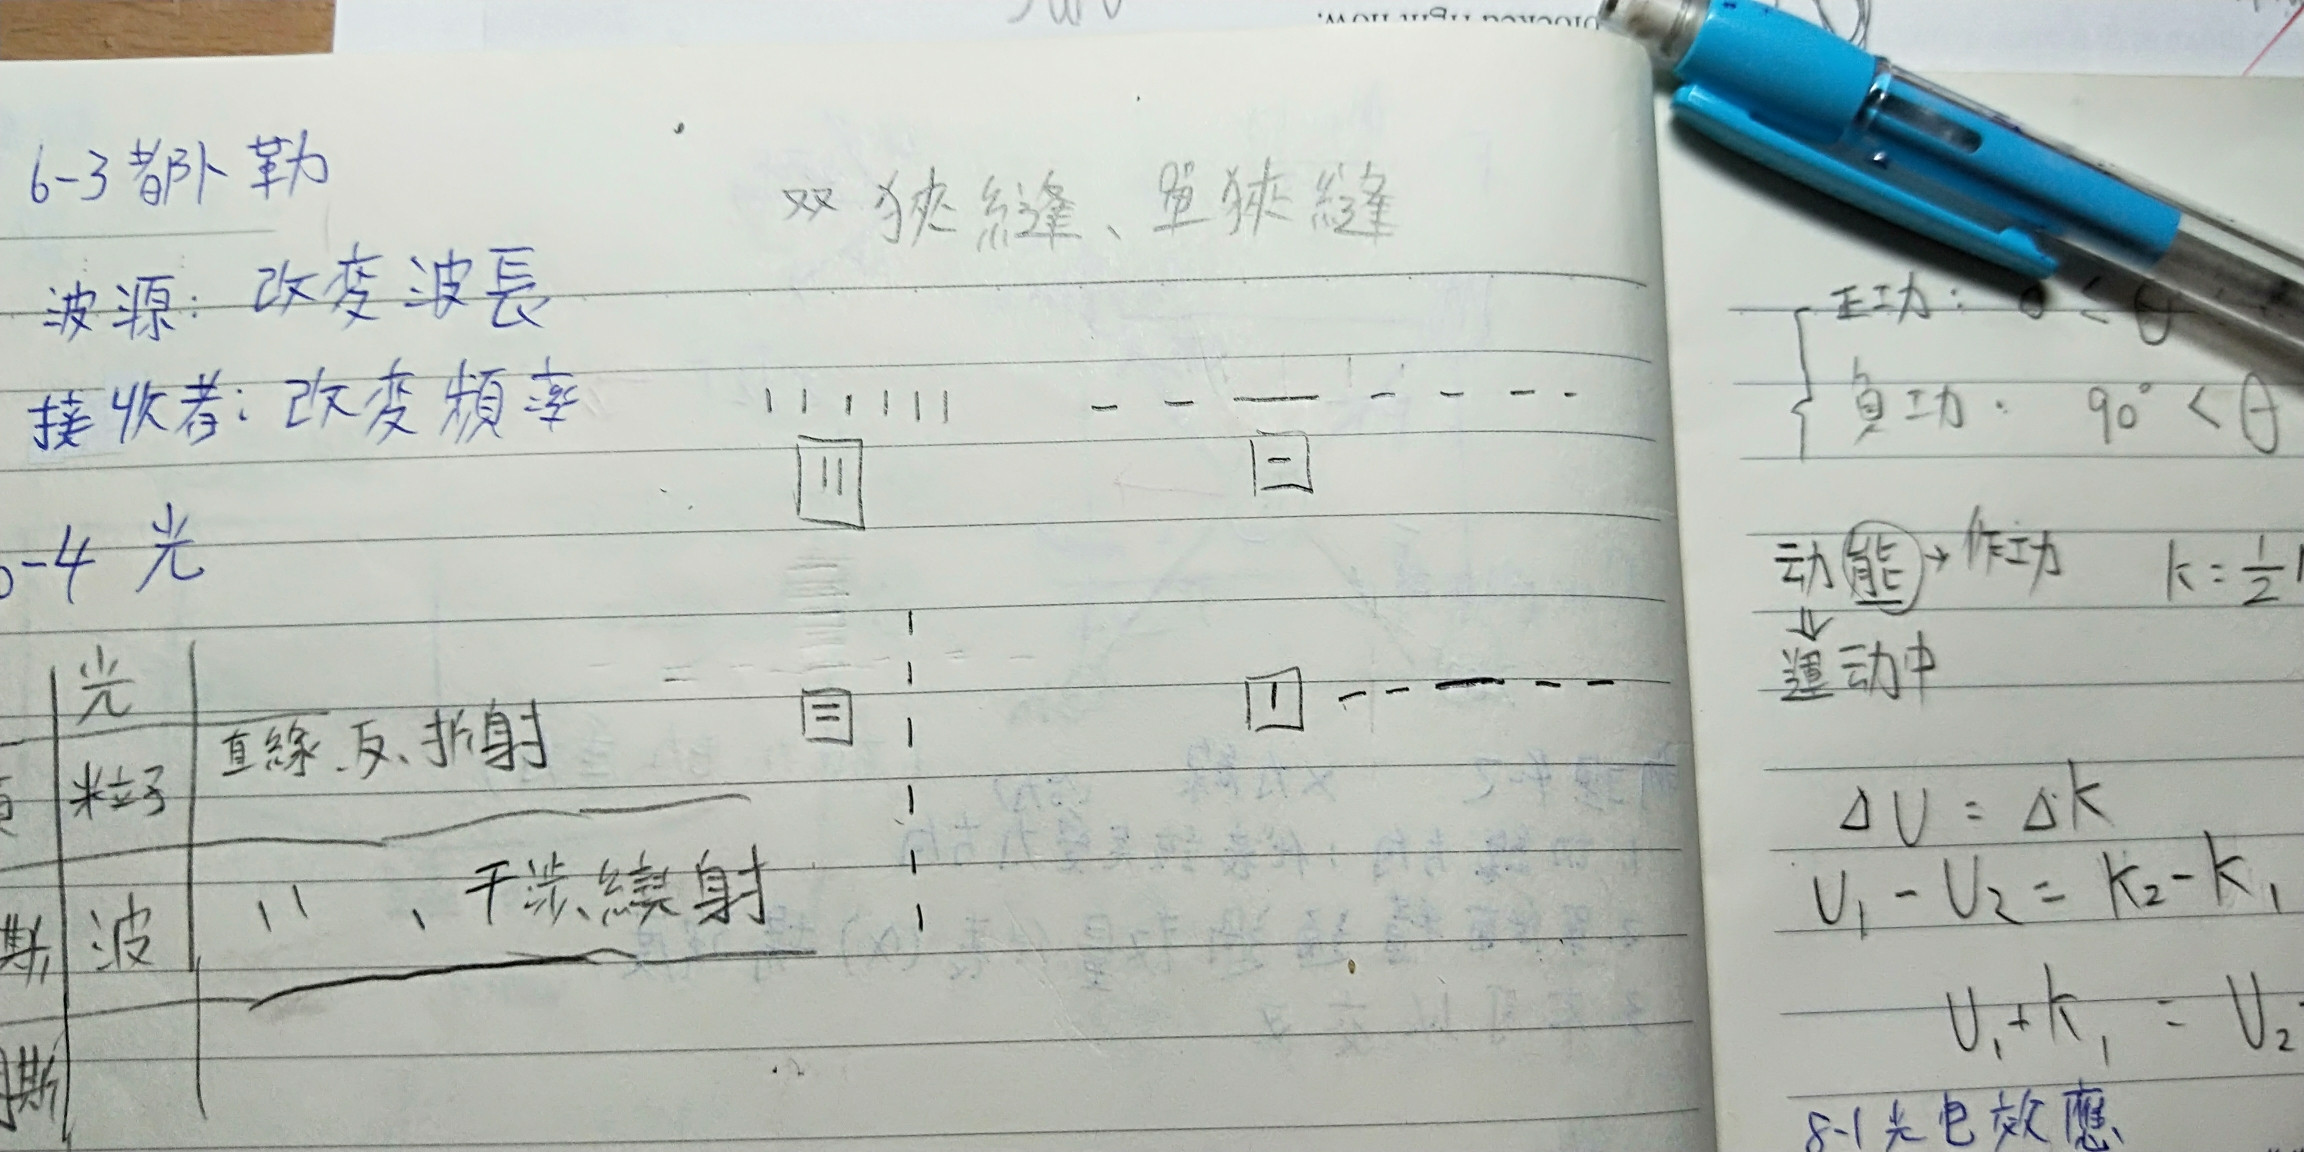 6-3 都卜勒
波源：改变波長
接收者：改变頻率
-4 光
光
粒子
直線、反、折射
斯
波
〃、干涉、繞射
斯
双狹縫、單狹縫
正功：0 < θ
負功： 90° < θ
动能→作功 k = 1/2
運动中
ΔU = Δk
U₁ - U₂ = k₂ - k₁
U₁ + k₁ = U₂
8-1 光电效應